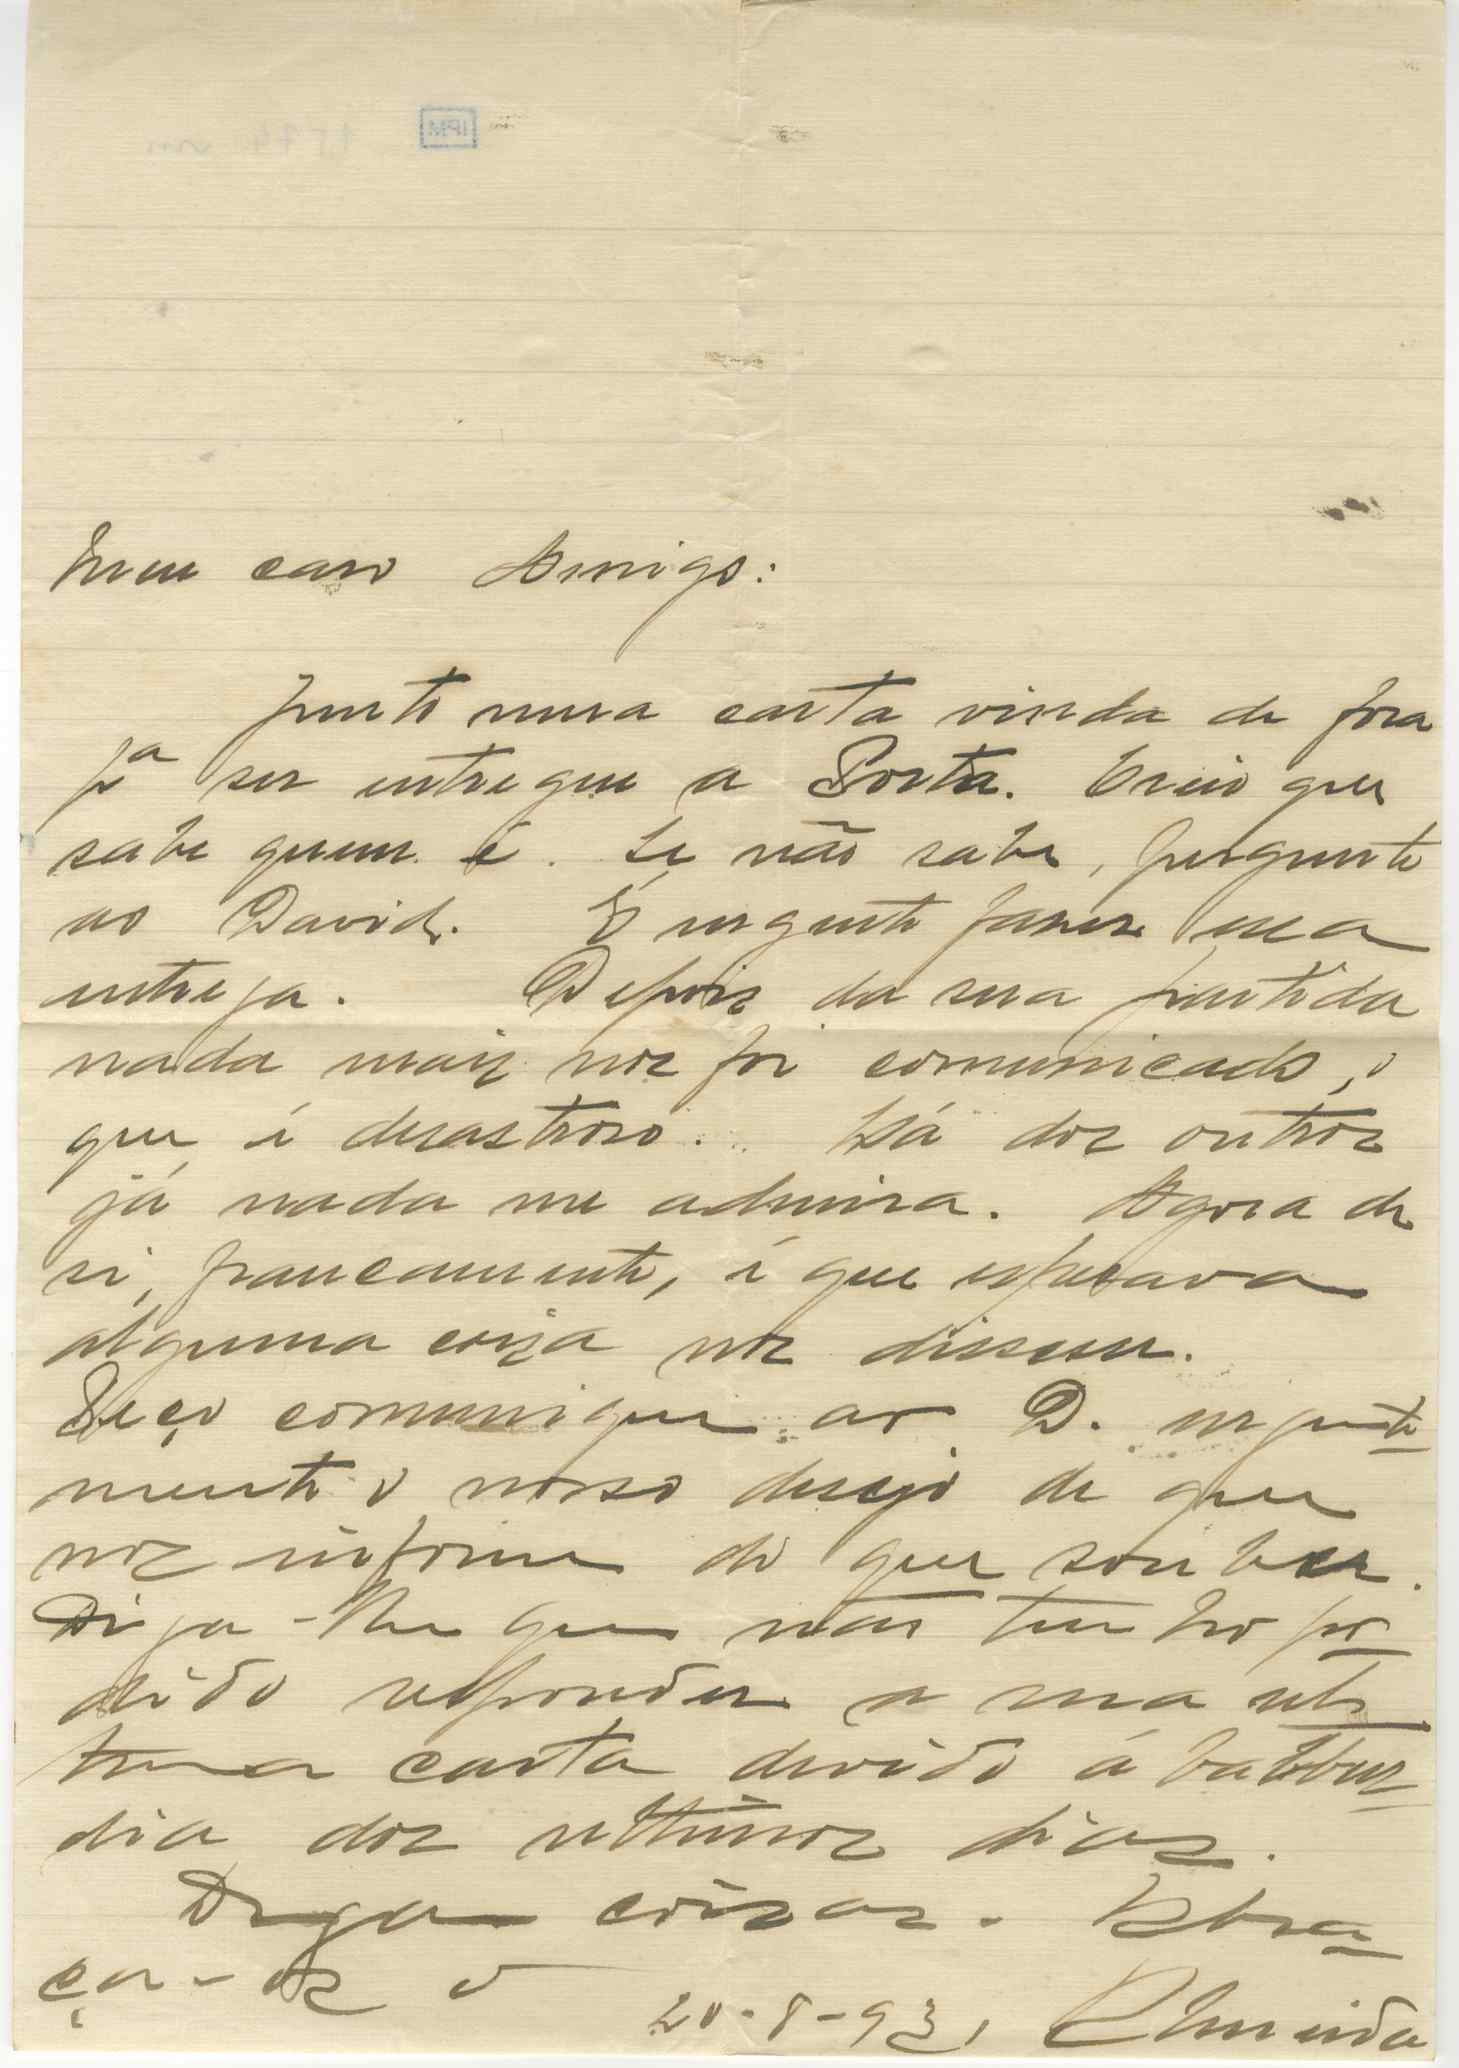 IPM
Meu caro Amigo:
Junto uma carta vinda de fora
pa ser entregue a Porta. Creio que
sabe quem é. Se não sabe, pergunte
ao David. É urgente fazer essa
entrega. Depois da sua partida
nada mais nos foi comunicado, o
que é desastroso. Lá dos outros
já nada me admira. Agora de
si, francamente, é que esperava
alguma coiza nos dissesse.
Peço comunique ao D. urgente
mente o nosso desejo de que
nos informe do que souber.
Diga-lhe que não tenho po
dido responder a sua ulti
ma carta devido á balbur
dia dos ultimos dias.
Diga coisas. Abra
ça-os o
20-8-93, Almeida